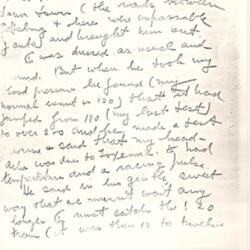 down town (the roads between
& here were impassable
and brought him out
I was dressed as usual and
But when he took my
blood pressure he found (my
normal count is 120) that it had
jumped from 180 (my last test)
to over 200 and he made a test
some & said that my head-
ache was due to I had
temperature and a racing pulse
He said in his gentle, sweet
way that we mustn't wait any
longer I must catch the 1 20
train (it was then 15 to twelve